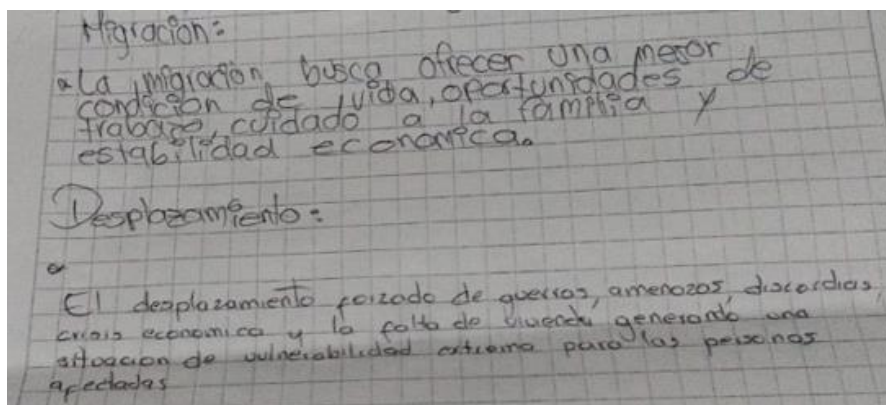 Migración:
La migración busca ofrecer una mejor
condición de vida, oportunidades de
trabajo, cuidado a la familia y
estabilidad economica.
Desplazamiento:
El desplazamiento forzado de guerras, amenazas, discordias,
crisis economica y la falta de vivienda generando una
situacion de vulnerabilidad extrema para las personas
afectadas